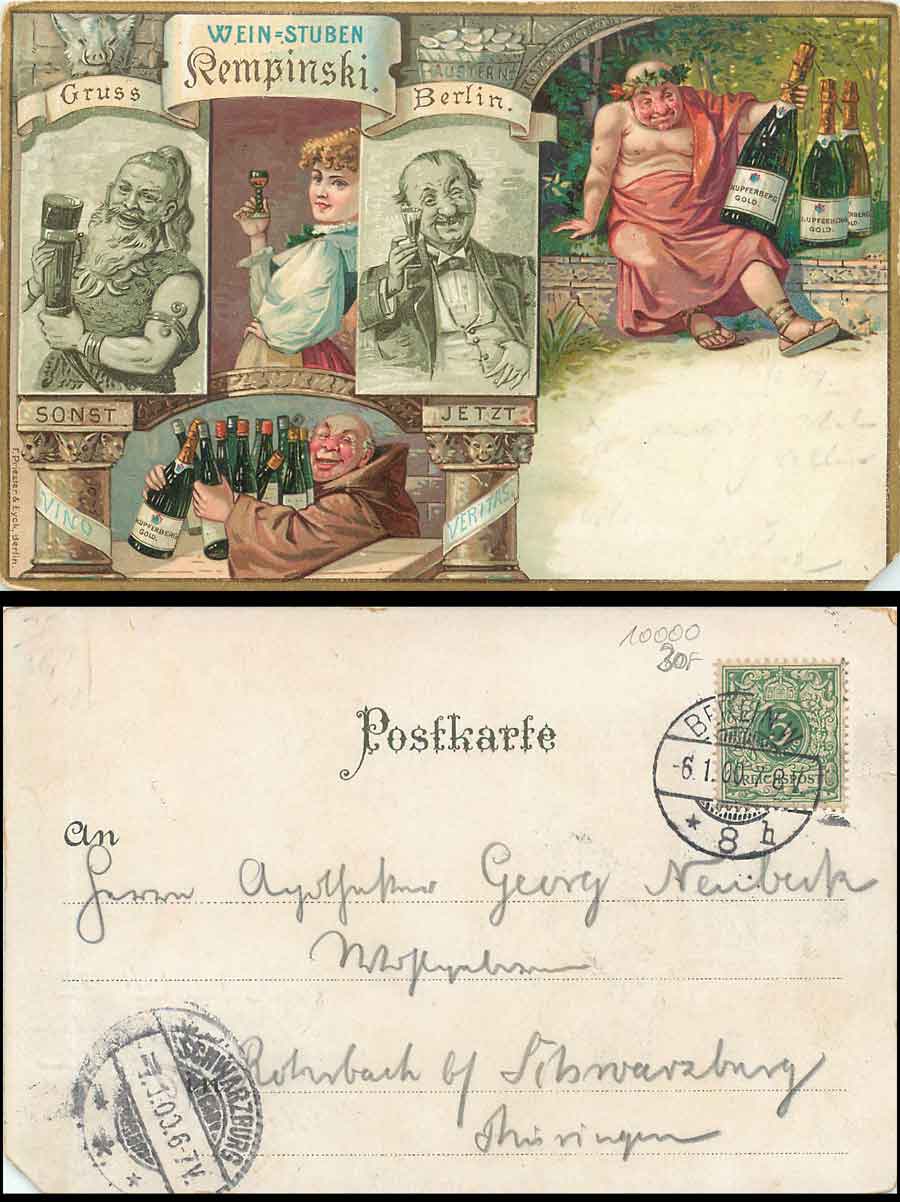 WEIN=STUBEN
Kempinski.
Gruss
Berlin.
AUSTERN
KUPFERBERG
GOLD.
KUPFERBERG
GOLD.
GOLD.
SONST
JETZT
VINO
VERITAS
KUPFERBERG
GOLD.
F. Priester & Eyck, Berlin.
10000
30F
Postkarte
BERLIN
5
REICHSPOST
-6.1.00.7-8
* 8 h
An
Herrn Apotheker Georg Neubeck
Wohlgeboren
in Rohrbach b/ Schwarzburg
Thüringen
SCHWARZBURG
7.1.00.6-7V.